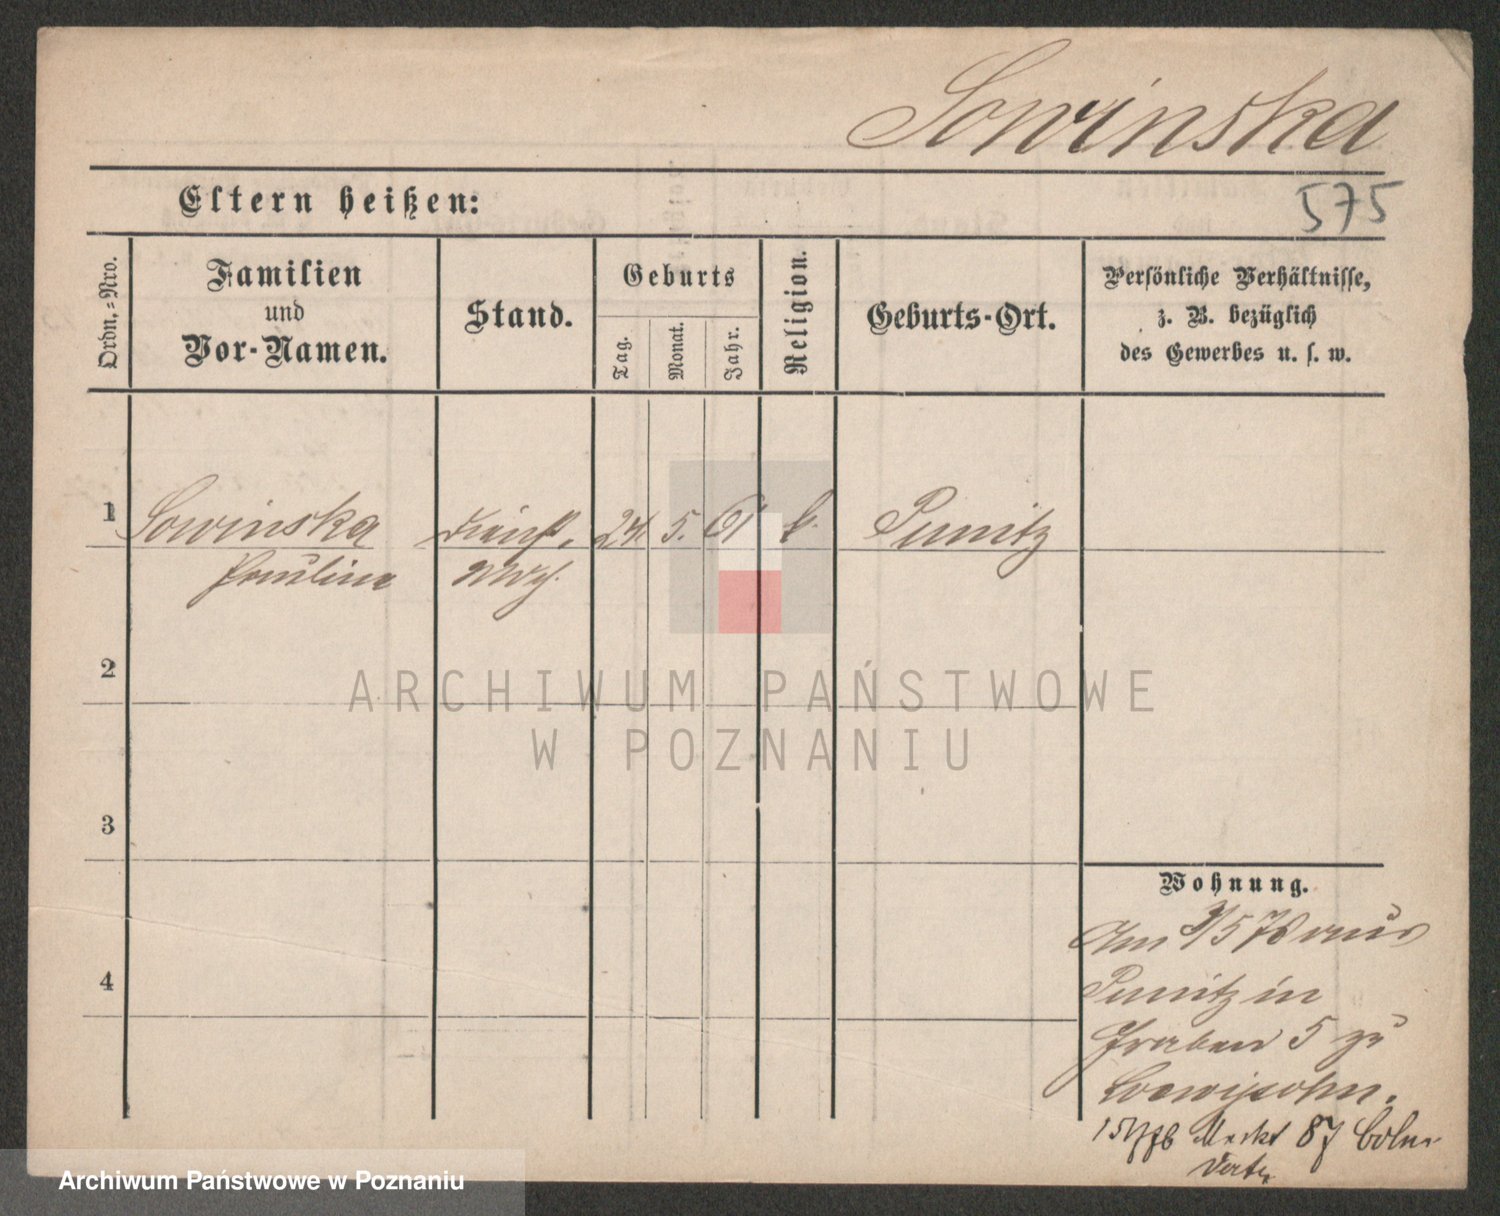 Sowinska
575
Eltern heißen:
Ordn.-Nro.
Familien
und
Vor-Namen.
Stand.
Geburts
Tag.
Monat.
Jahr.
Religion.
Geburts-Ort.
Persönliche Verhältnisse,
z. B. bezüglich
des Gewerbes u. s. w.
1
Sowinska
Pauline
Dienst-
24. 5. 61 k.
Punitz
2
3
4
Wohnung.
Am 3/5 78 aus
Punitz in
Graben 5 zu
Loewysohn.
Markt 87
ARCHIWUM PAŃSTWOWE
W POZNANIU
Archiwum Państwowe w Poznaniu